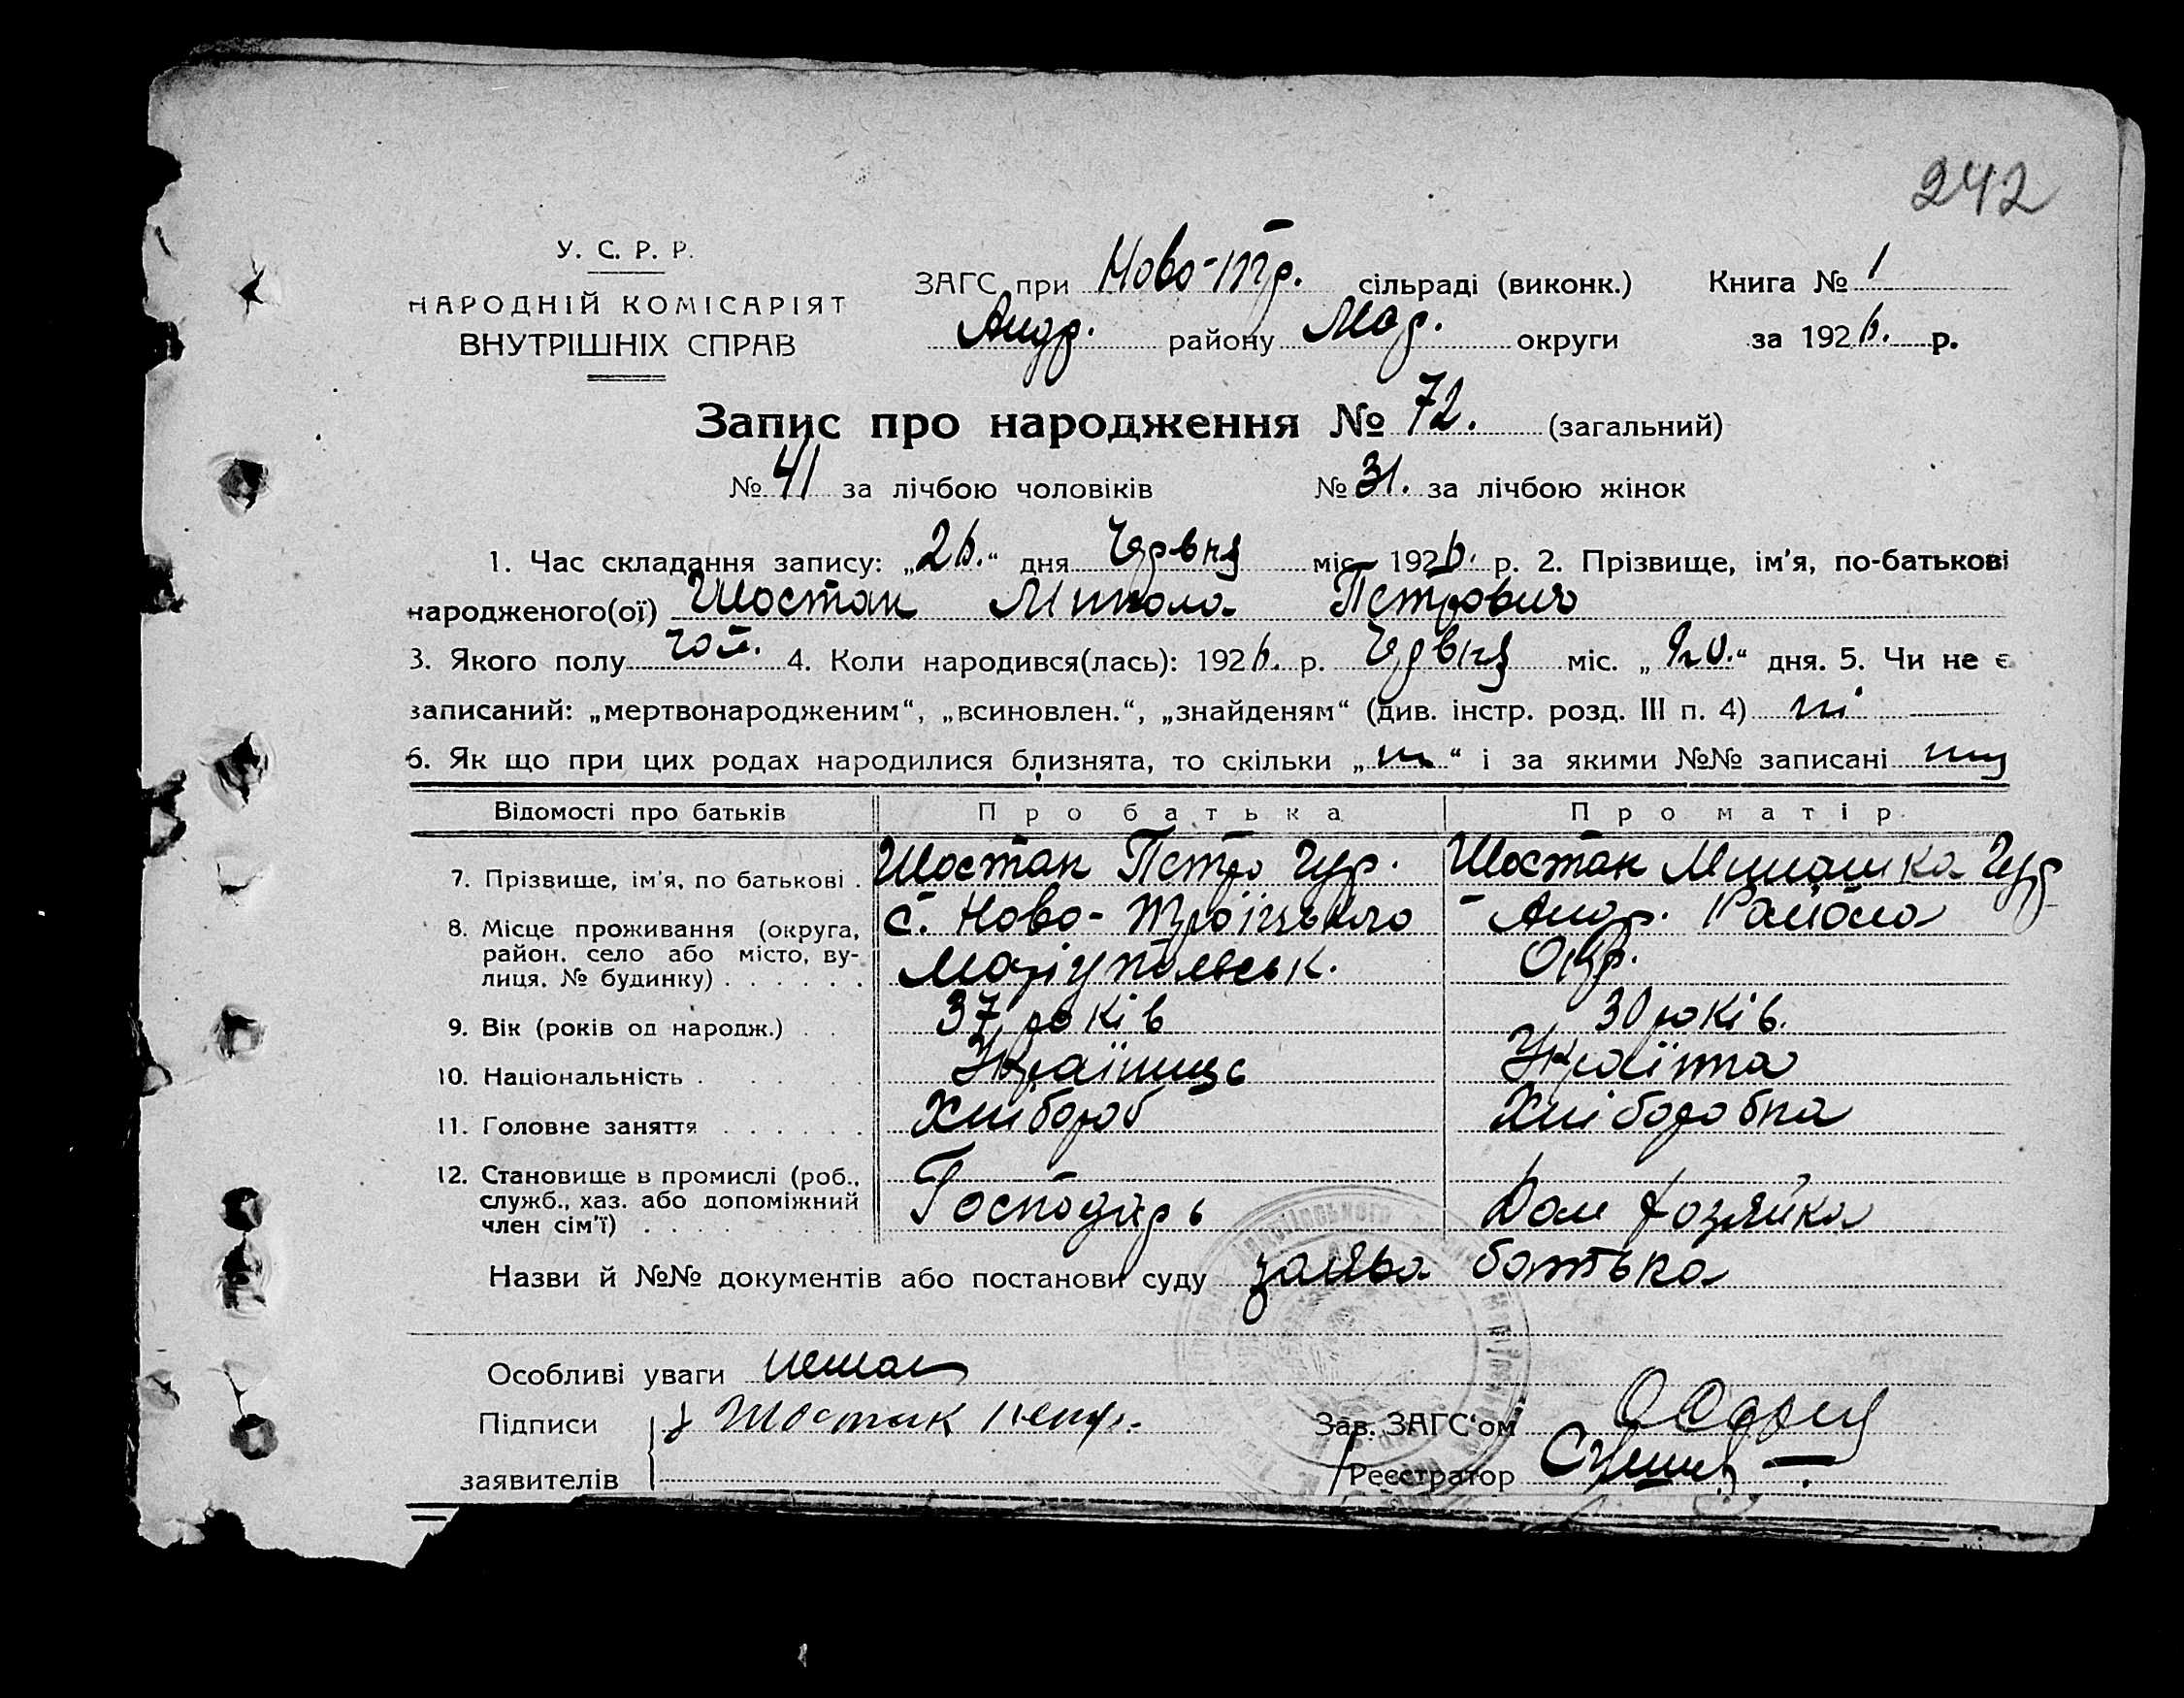 242
У. С. Р. Р.
НАРОДНІЙ КОМІСАРІЯТ
ВНУТРІШНІХ СПРАВ
ЗАГС при Ново-тр. сільраді (виконк.) Книга № 1
Андр. району Мар. округи за 1926. р.
Запис про народження № 72. (загальний)
№ 41 за лічбою чоловіків № 31. за лічбою жінок
1. Час складання запису: „26.“ дня Червня міс. 1926. р. 2. Прізвище, ім'я, по-батькові
народженого(ої) Шостак Микола Петрович
3. Якого полу чол. 4. Коли народився(лась): 1926. р. Червня міс. „20.“ дня. 5. Чи не є
записаний: „мертвонародженим“, „всиновлен.“, „знайденям“ (див. інстр. розд. III п. 4) ні
6. Як що при цих родах народилися близнята, то скільки „ “ і за якими №№ записані
Відомості про батьків Про батька Про матір
7. Прізвище, ім'я, по батькові . Шостак Петро Шостак
8. Місце проживання (округа, район, село або місто, вулиця, № будинку) . . . . . . с. Ново-Троїцького Андр. Району
Маріупольськ. Окр.
9. Вік (років од народж.) . . 37 років 30 років.
10. Національність . . . . . Українец Українка
11. Головне заняття . . . . . . Хлібороб Хліборобка
12. Становище в промислі (роб., служб., хаз. або допоміжний член сім'ї) . . . . . . . Господарь Дом хозяйка
Назви й №№ документів або постанови суду заява батька
Особливі уваги немає
Підписи Шостак Петр. Зав. ЗАГС'ом
заявителів Реєстратор